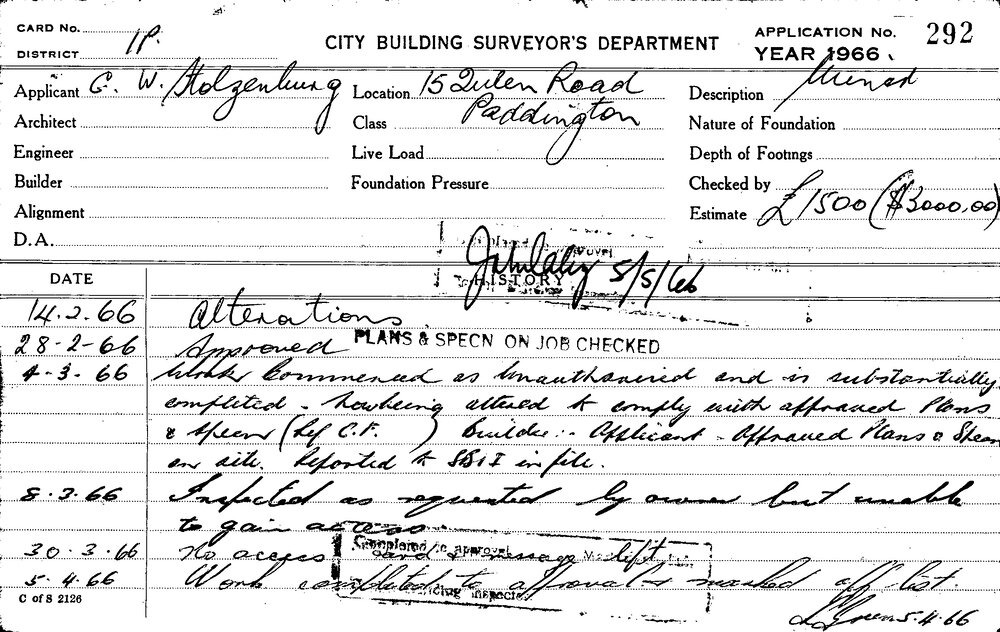 CARD No.
DISTRICT 1P.
CITY BUILDING SURVEYOR'S DEPARTMENT
APPLICATION No. 292
YEAR 1966
Applicant G. W. Stolzenburg
Location 15 Qulen Road
Paddington
Description
Architect
Class
Nature of Foundation
Engineer
Live Load
Depth of Footings
Builder
Foundation Pressure
Checked by
Alignment
Estimate £1500 ($3000.00)
D.A.
5/5/66
DATE
HISTORY
14.2.66 Alterations
28-2-66 Approved PLANS & SPECN ON JOB CHECKED
4-3-66 Works Commenced as Unauthorised and is substantially
completed - now being altered to comply with approved Plans
& Specn (Ref C.F. ) Builder:- Applicant - Approved Plans & Specn
on site. Reported to in file.
8.3.66 Inspected as requested by owner but unable
to gain access
30.3.66 No access card & message left.
Completed to approval
5.4.66 Work completed to approval & marked off list.
C of S 2126
5.4.66